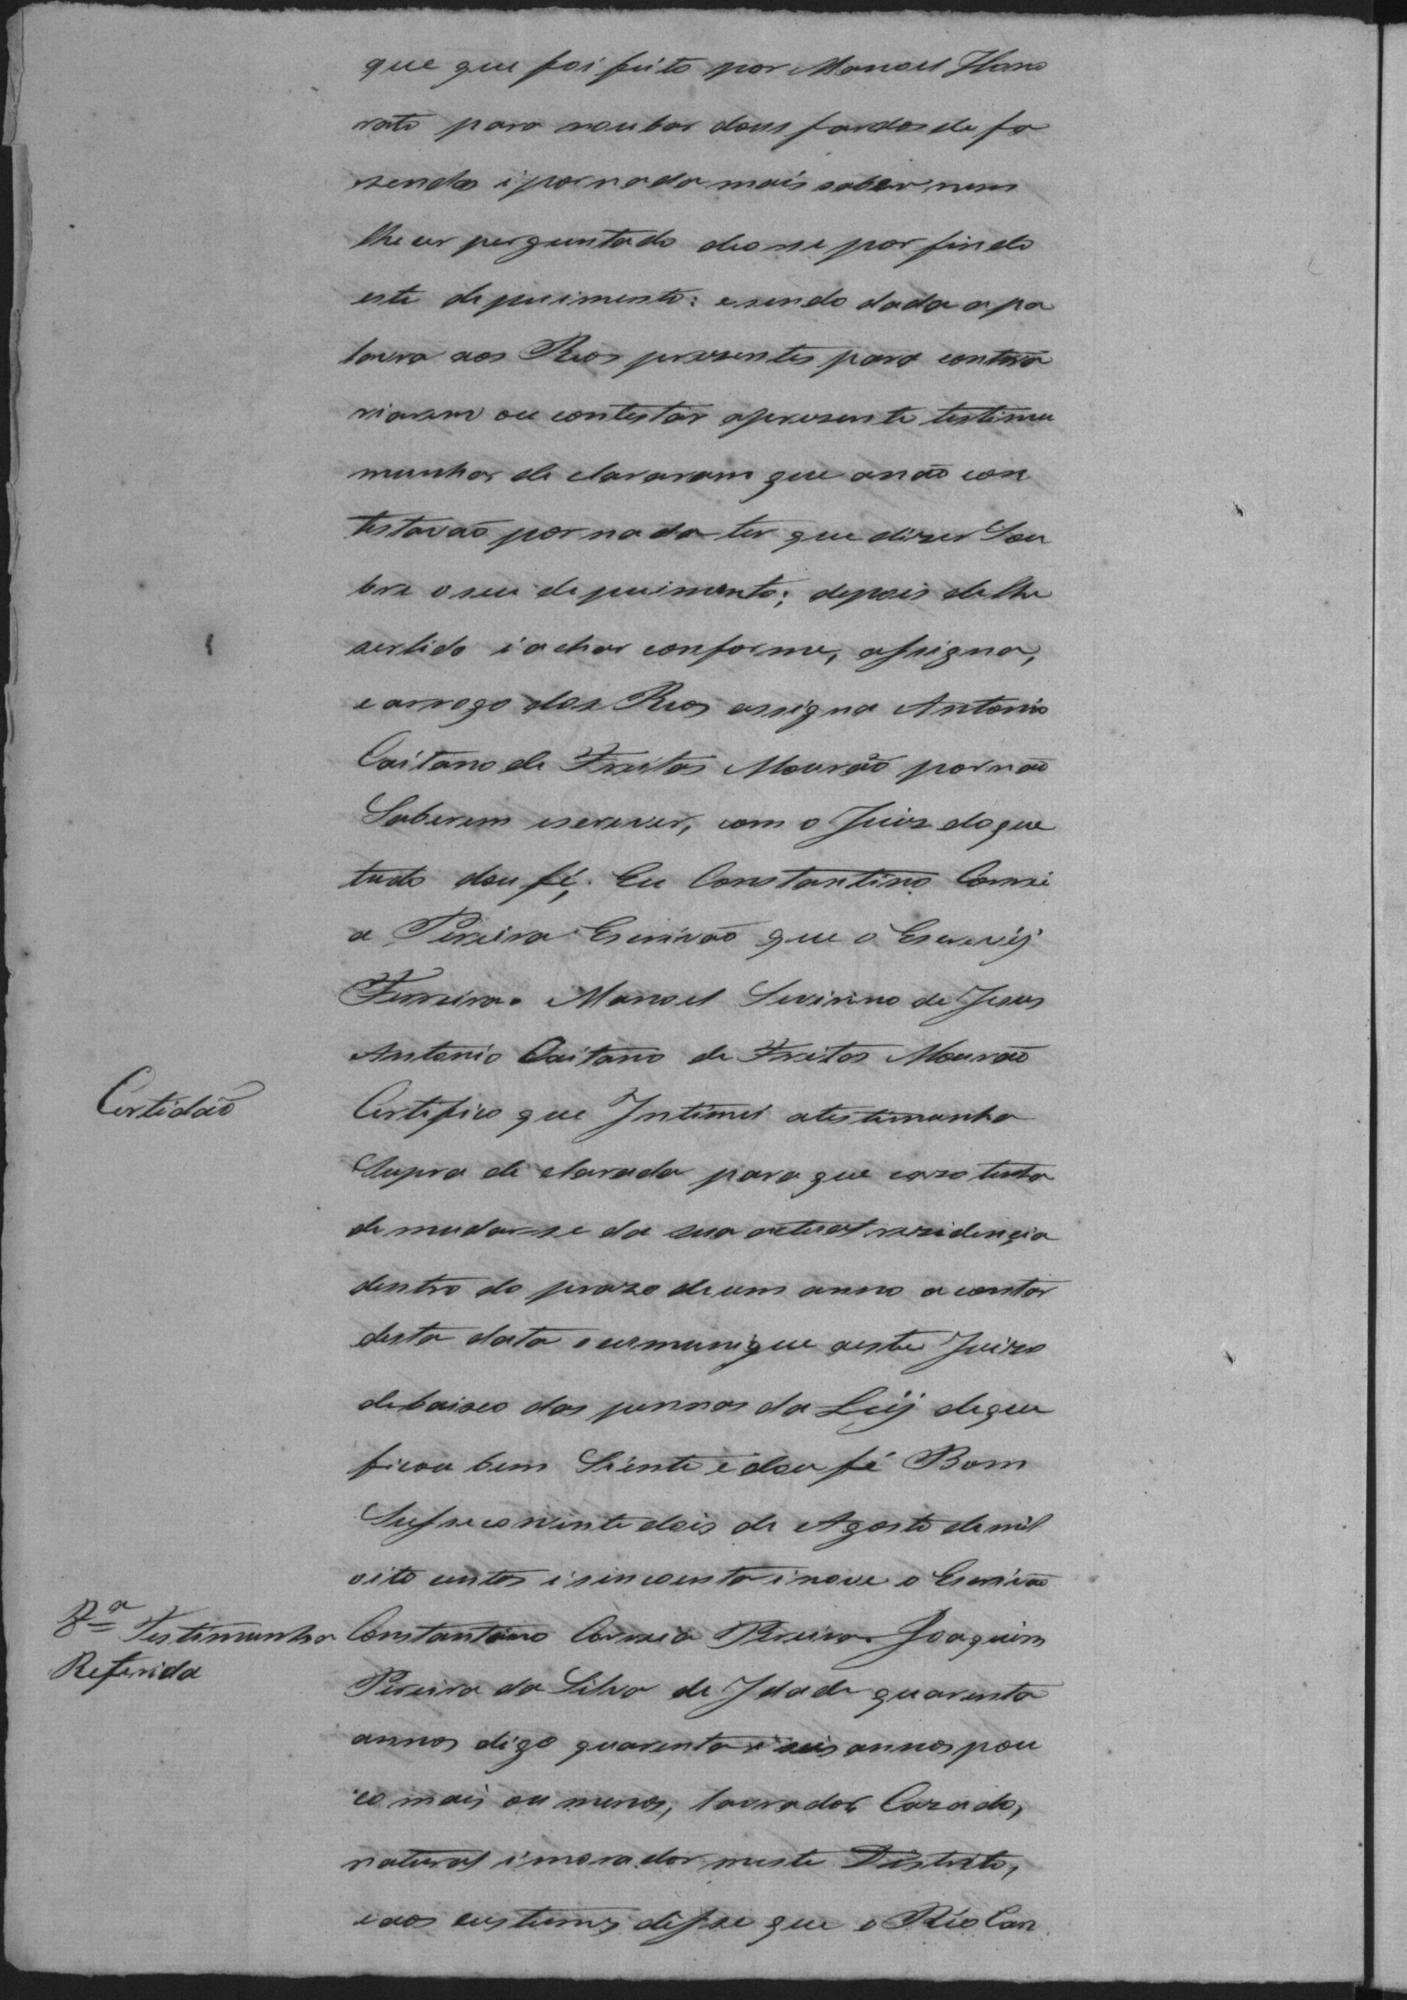 que que foi feito por Manoel Hono
rato para roubar dous fardos de fa
sendas i por nada mais saber nem
lhe ser perguntado deo se por findo
este de puimento: e sendo dada a pa
lavra aos Reos presentes para contra
riarem ou contestar apresente testimu
munhas de clararam que anão con
testavão por nada ter que dizer Sou
bre o seu de puimento; depois de lhe
ser lido i achar conforme, assigna,
e arrogo dos Reos assigna Antonio
Caitano de Freitas Mourão por não
Saberem escrever, com o Juiz do que
tudo dou fé. Eu Constantino Correi
a Pereira Escrivão que o Escrevij
Ferreira. Manoel Sevirino de Jesus
Antonio Caitano de Freitas Mourão
Certidão
Certifico que Intimei atestimunha
Supra de clarada para que cazo tenta
de mudar-se da sua actual rezidençia
dentro do prazo de um anno a contar
desta data o comunique aeste Juizo
debaixo das pennas da Leij de que
ficou bem Siente e dou fé Bom
Susseco vinte dois de Agosto de mil
oito centos i sincoenta i nove o Escrivão
8ª Testimunha
Referida
Constantino Correia Pereira. Joaquim
Pereira da Silva de Idade quarenta
annos digo quarenta i seis annos pou
co mais ou menos, lavrador Cazado,
natural i morador neste Distrito,
e aos custumes disse que o Réo Can